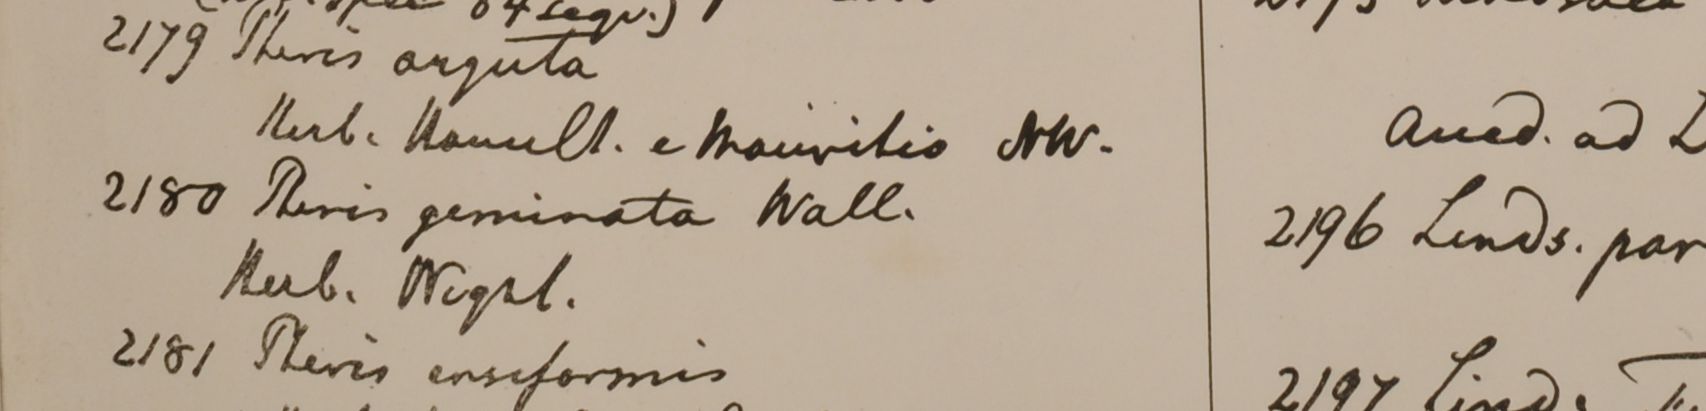 2179 Pteris arguta
Herb. Hamilt. e Mauritio NW.
2180 Pteris geminata Wall.
Herb. Wight.
2181 Pteris ensiformis
ad
2196 Linds. par
2197 Linds.